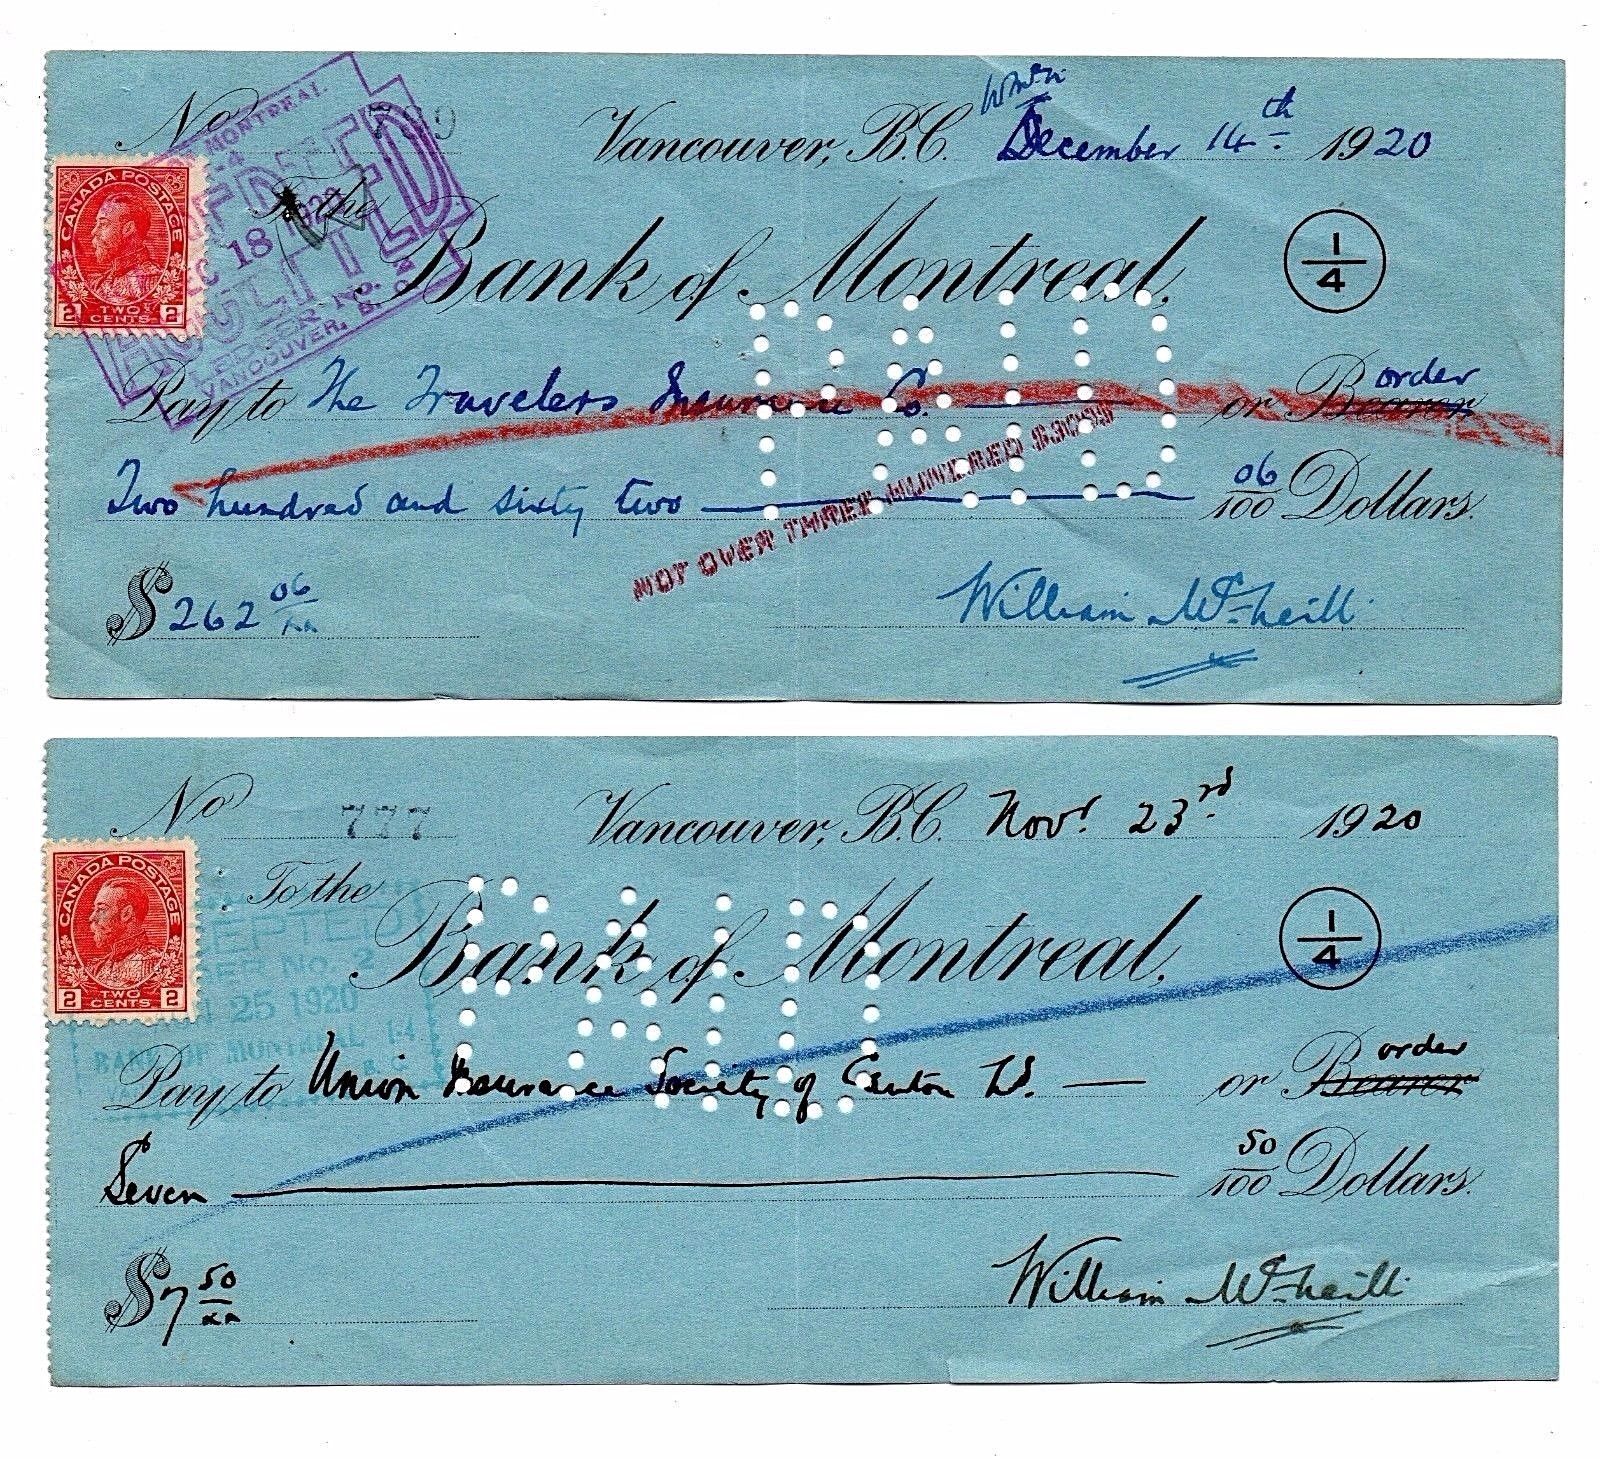 No 799
Vancouver, B.C. December 14th 1920
Wm McN
CANADA POSTAGE
2 TWO CENTS 2
MONTREAL
DEC 18 1920
VANCOUVER, B.C.
To the
Bank of Montreal.
1/4
PAID
Pay to The Travelers Insurance Co. or Bearer order
Two hundred and sixty two 06/100 Dollars.
NOT OVER THREE HUNDRED $300
$262 06/xx
William McNeill
No 777
Vancouver, B.C. Novr 23rd 1920
CANADA POSTAGE
2 TWO CENTS 2
To the
Bank of Montreal.
1/4
PAID
ACCEPTED
LEDGER No. 2
25 1920
BANK OF MONTREAL 1-4
B.C.
Pay to Union Insurance Society of Canton Ld. or Bearer order
Seven 50/100 Dollars.
$7 50/xx
William McNeill